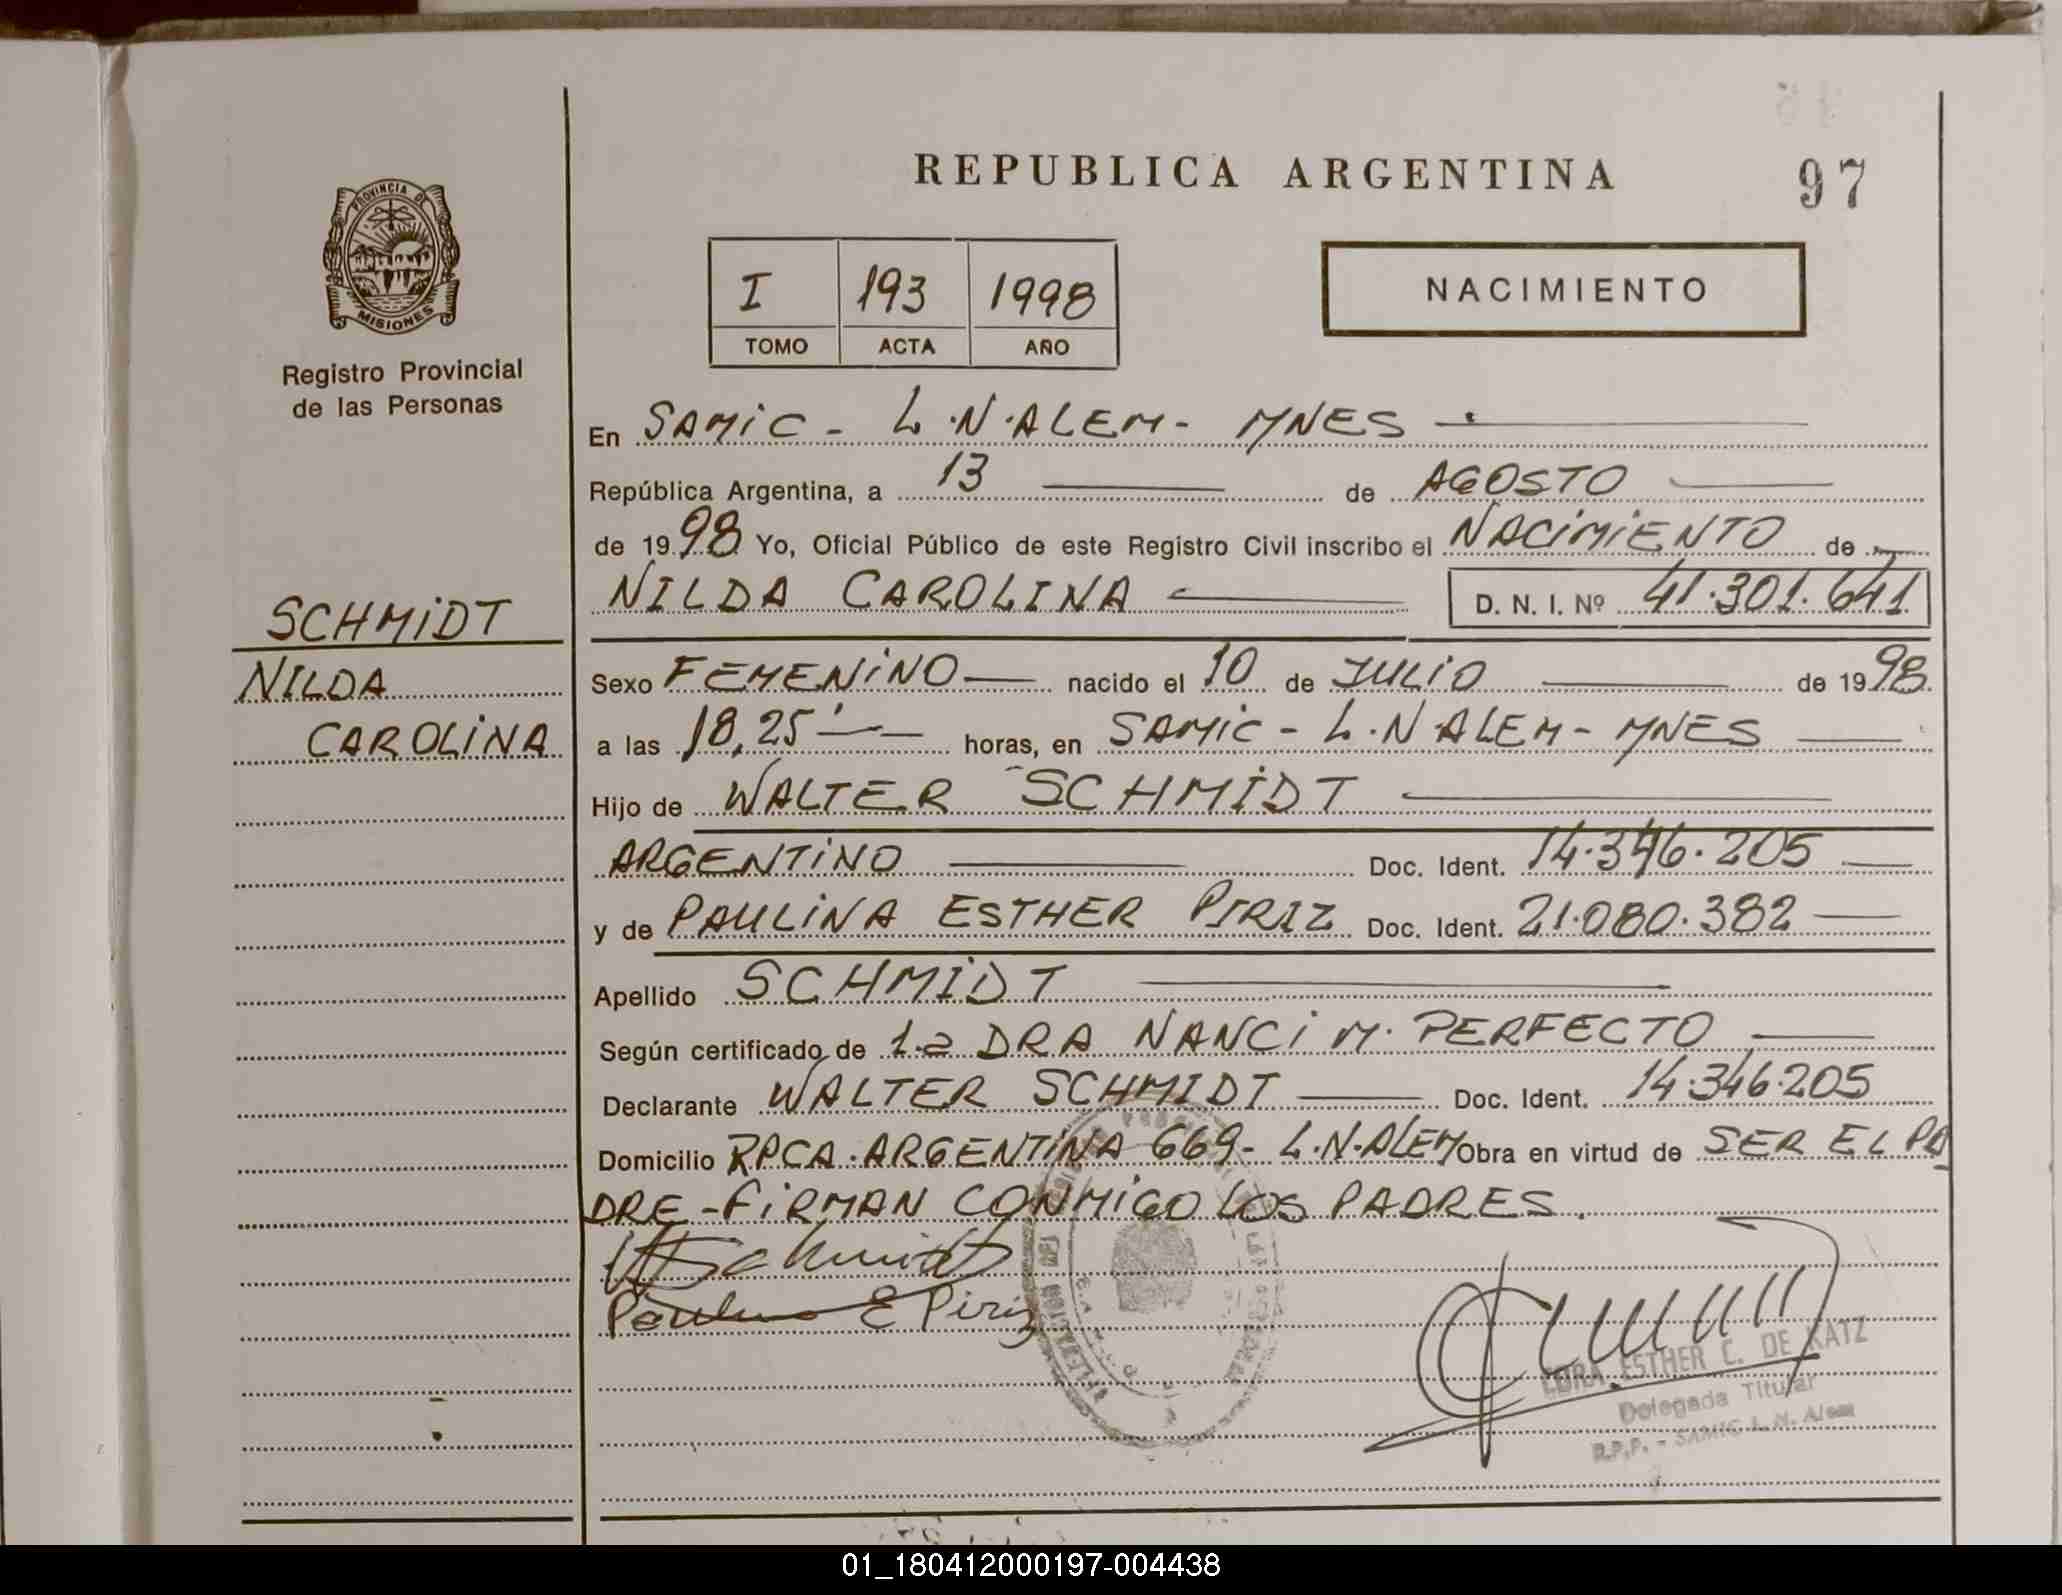 REPUBLICA ARGENTINA
97
PROVINCIA DE
MISIONES
Registro Provincial
de las Personas
I 193 1998
TOMO ACTA AÑO
NACIMIENTO
En SAMIC - L.N.ALEM - MNES
República Argentina, a 13 de AGOSTO
de 1998 Yo, Oficial Público de este Registro Civil inscribo el NACIMIENTO de
NILDA CAROLINA D. N. I. Nº 41.301.641
SCHMIDT
NILDA
CAROLINA
Sexo FEMENINO nacido el 10 de JULIO de 1998
a las 18,25' horas, en SAMIC - L.N ALEM - MNES
Hijo de WALTER SCHMIDT
ARGENTINO Doc. Ident. 14.346.205
y de PAULINA ESTHER PIRIZ Doc. Ident. 21.080.382
Apellido SCHMIDT
Según certificado de 1.a DRA NANCI M. PERFECTO
Declarante WALTER SCHMIDT Doc. Ident. 14.346.205
Domicilio RPCA. ARGENTINA 669- L.N.ALEM Obra en virtud de SER EL PA
DRE - FIRMAN CONMIGO LOS PADRES.
WSchmidt
Paulina E Piriz
ESTHER C. DE KATZ
Delegada Titular
R.P.P. - SAMIC L. N. Alem
01_180412000197-004438